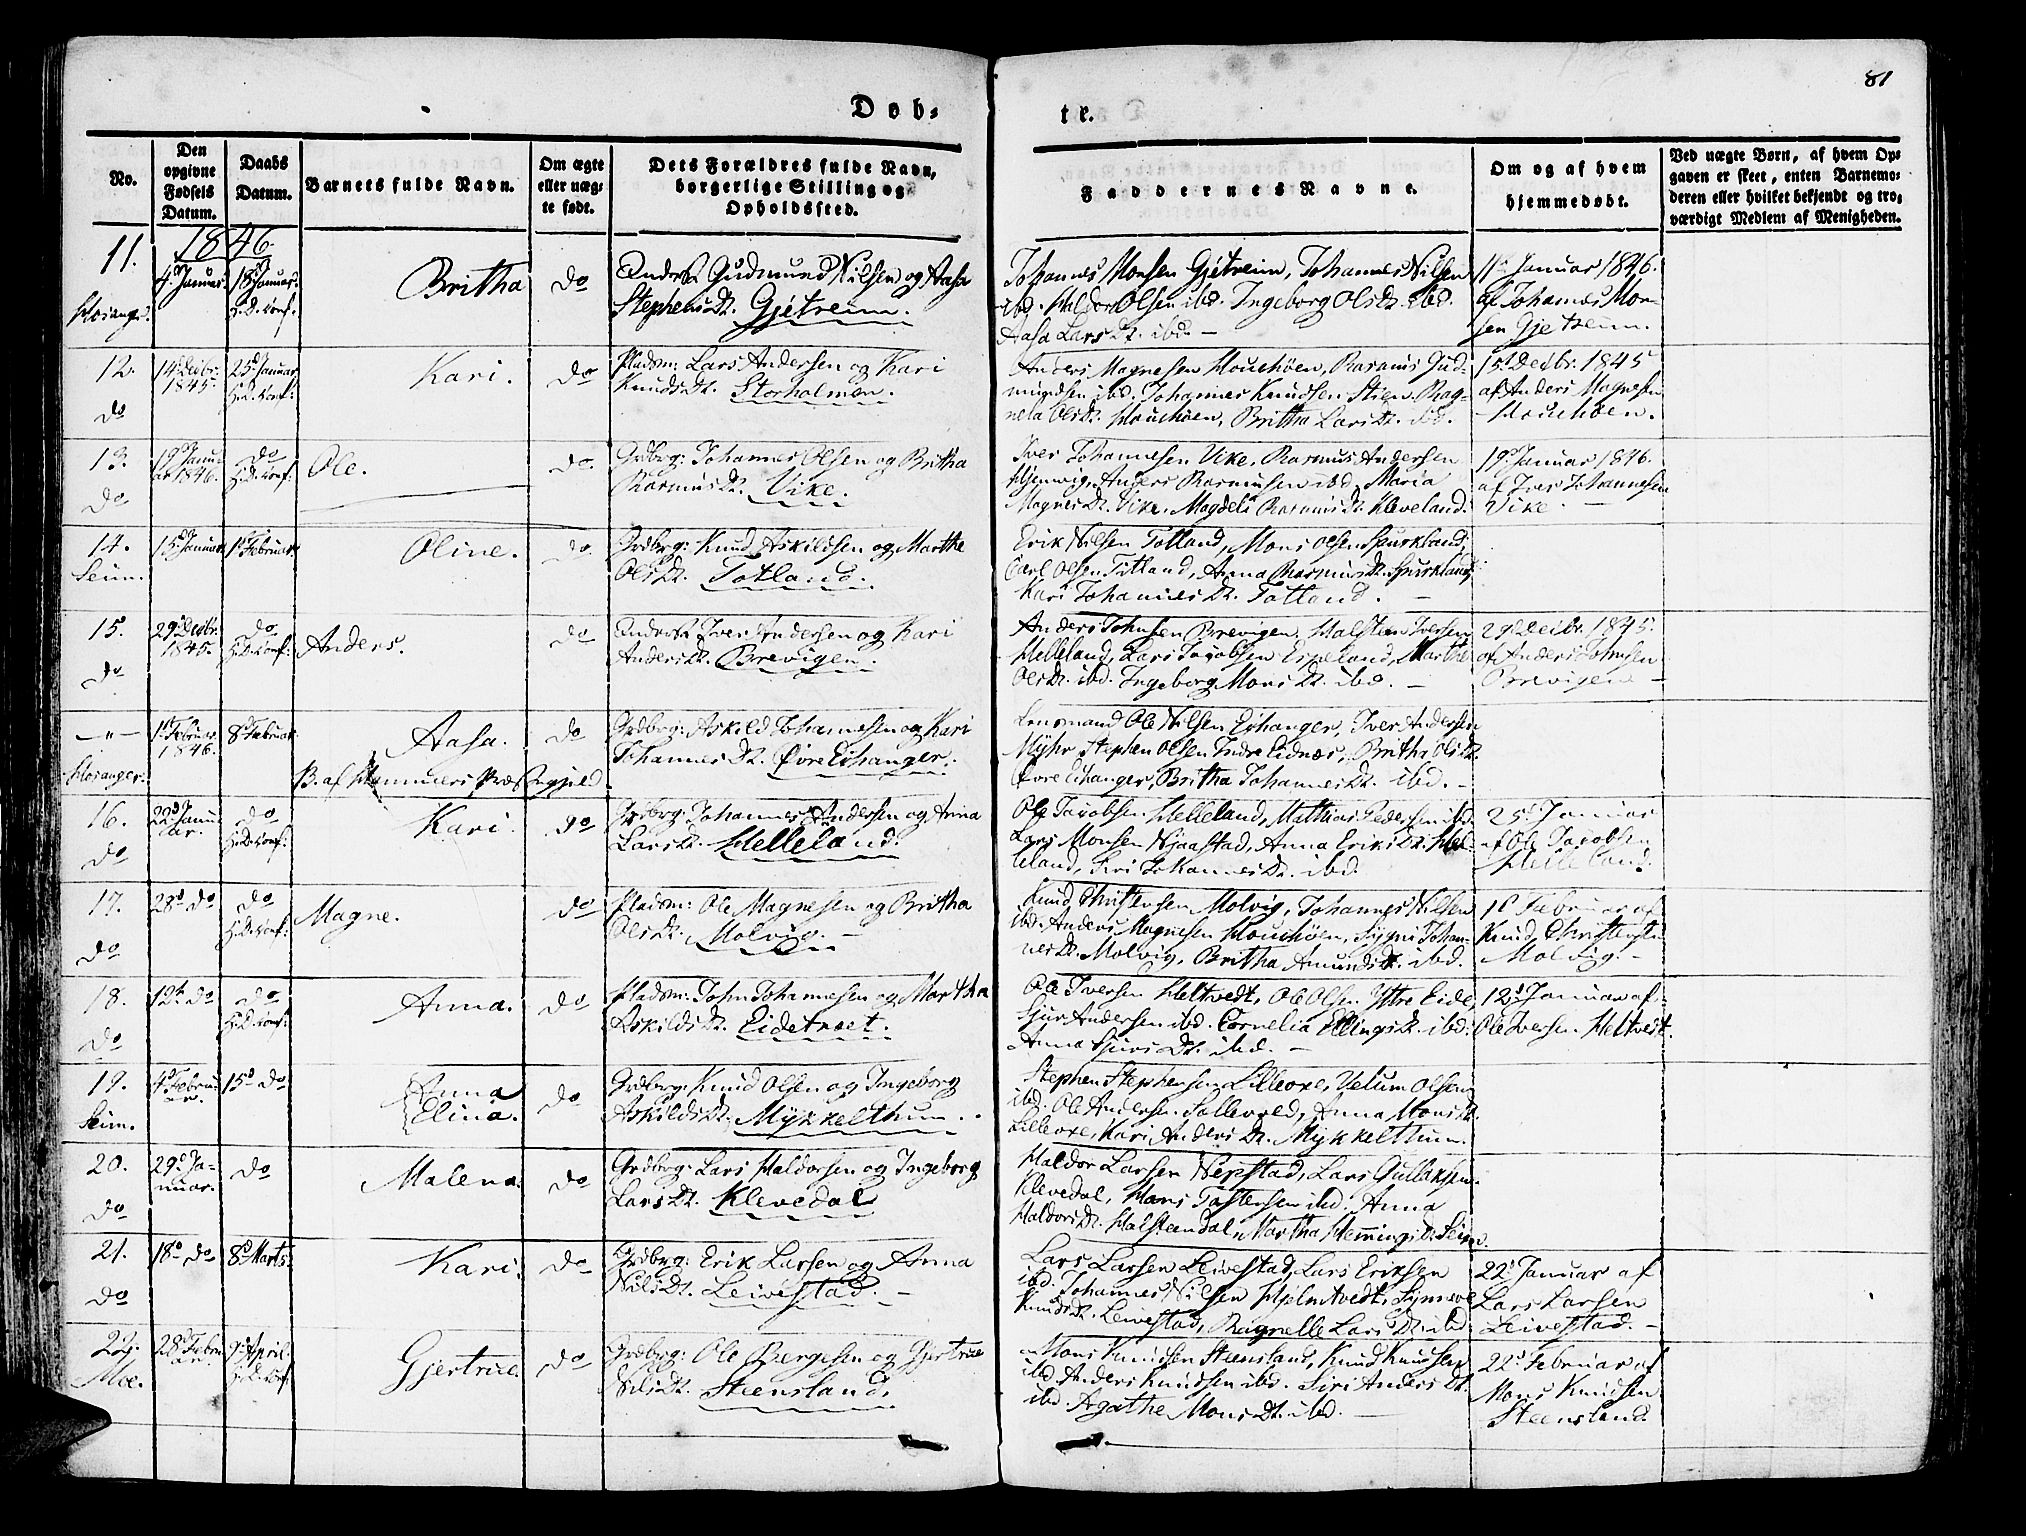 81
Døb-
te.
No.
Den
opgivne
Fødsels
Datum.
Daabs
Datum.
Barnets fulde Navn.
Om ægte
eller uæg-
te født.
Dets Forældres fulde Navn,
borgerlige Stilling og
Opholdssted.
Faddernes Navne.
Om og af hvem
hjemmedøbt.
Ved uægte Børn, af hvem Op-
gaven er skeet, enten Barnemo-
deren eller hvilket bekjendt og tro-
værdigt Medlem af Menigheden.
1846
11.
4 Januar.
18 Januar.
H.D. konf:
Britha
do
Gudmund Nilsen og Aasa
Stephens Dt. Gjetreim.
Johannes Monsen Gjetreim, Johannes Nilsen
ibd. Haldor Olsen ibd. Ingeborg Olsdt. ibd.
Aasa Lars Dt. ibd. —
11 Januar 1846.
af Johannes Mon-
sen Gjetreim.
12.
do
14 Decbr.
1845.
25 Januar
H.D. konf:
Kari.
do
Pladsm: Lars Andersen og Kari
Knuds Dt. Storholmen.
Anders Magnesen Houehöen, Rasmus Gud-
mundsen ibd. Johannes Knudsen Stien. Rag-
nela Olsdt. Houehöen, Britha Lars Dt. ibd.
15 Decbr. 1845
af Anders Magnesen
Houehöen.
13.
do
19 Janu-
ar 1846.
do
H.D. konf:
Ole.
do.
Grdbrg: Johannes Olsen og Britha
Rasmus Dt. Vike.
Iver Johannesen Vike, Rasmus Andersen
Hjenvig. Anders Rasmusen ibd. Maria
Magnes Dt. Vike, Magdeli Rasmus Dt. Kleveland.
19 Januar 1846.
af Iver Johannesen
Vike. —
14.
Seim.
15 Januar
1 Februar
Oline.
do.
Grdbrg: Knud Askildsen og Marthe
Ols Dt. Totland.
Erik Nilsen Totland, Mons Olsen Spurkland,
Carl Olsen Totland, Anna Rasmus Dt. Spurkland,
Kari Johannes Dt. Totland. —
15.
do
29 Decbr.
1845.
do
H.D. konf:
Anders.
do
Iver Andersen og Kari
Anders Dt. Brevigen.
Anders Johnsen Brevigen, Halsten Iversen
Helleland, Lars Jacobsen Espeland, Marthe
Ols Dt. ibd. Ingeborg Mons Dt. ibd. —
29 Decbr. 1845.
af Anders Johnsen
Brevigen —
— " —
1 Februar
1846.
8 Februar
Aasa.
do
Grdbrg: Askild Johannesen og Kari
Johannes Dt. Øvre Eihanger.
B. af Hammers Præstegjeld
Lensmand Ole Nilsen Eihanger, Iver Andersen
Myhr, Stephen Olsen Indre Eidnæs, Britha Ols Dt.
Øvre Eihanger, Britha Johannes Dt. ibd. —
16.
do
22 Janu-
ar.
do
H.D. konf:
Kari.
do
Grdbrg: Johannes Andersen og Anna
Lars Dt. Helleland.
Ole Jacobsen Helleland, Mathias Pedersen ibd.
Lars Monsen Njaastad, Anna Eriks Dt. Hel-
leland, Siri Johannes Dt. ibd.
25 Januar
af Ole Jacobsen
Helleland.
17.
do
28 do
do
H.D. konf:
Magne.
do
Pladsm: Ole Magnesen og Britha
Ols Dt. Molvig. —
Knud Christensen Molvig, Johannes Nilsen
ibd. Anders Magnesen Houehöen, Johan-
nes Dt. Molvig, Britha Amunds Dt. ibd.
1 Februar af
Knud Christensen
Molvig. —
18.
do
12 do
do
H.D. konf:
Anna.
do
Pladsm: John Johannesen og Martha
Askilds Dt. Eidetræet.
Ole Iversen Heltvedt, Ole Olsen Ytre Eide,
Sjur Andersen ibd. Cornelia Ellings Dt. ibd.
Anna Sjurs Dt. ibd. —
12 Januar af
Ole Iversen Heltvedt.
19.
Seim.
4 Febru-
ar.
15 do
Anna
Elina.
do
Grdbrg: Knud Olsen og Ingeborg
Askilds Dt. Mykkelthum.
Stephen Stephensen Lilleoxe, Velum Olsen
ibd. Ole Andersen Sollevold, Anna Mons Dt.
Lilleoxe, Kari Anders Dt. Mykkelthum.
20.
do
29 Ja-
nuar.
do
Malena.
do
Grdbrg: Lars Haldorsen og Ingeborg
Lars Dt. Klevedal
Haldor Larsen Nepstad, Lars Gullaksen
Klevedal, Hans Tostensen ibd. Anna
Haldors Dt. Halsteendal, Martha Hemings D. Seim.
21.
do
18 do
8 Marts
Kari.
do
Grdbrg: Erik Larsen og Anna
Nils Dt. Leivestad. —
Lars Larsen Leivestad, Lars Eriksen
ibd. Johannes Nilsen Hjelmtvedt, Synneve
Knuds Dt. Leivestad, Ragnelle Lars Dt. ibd.
22 Januar af
Lars Larsen
Leivestad. —
22.
Moe.
28 Febru-
ar.
9 April
H.D. konf
Gjertrue.
do
Grdbrg: Ole Bergesen og Gjertrue
Nils Dt. Steensland.
Mons Knudsen Steensland, Knud Knudsen
ibd. Anders Knudsen ibd. Siri Anders Dt.
ibd. Agathe Mons Dt. ibd. —
22 Februar af
Mons Knudsen
Steensland.